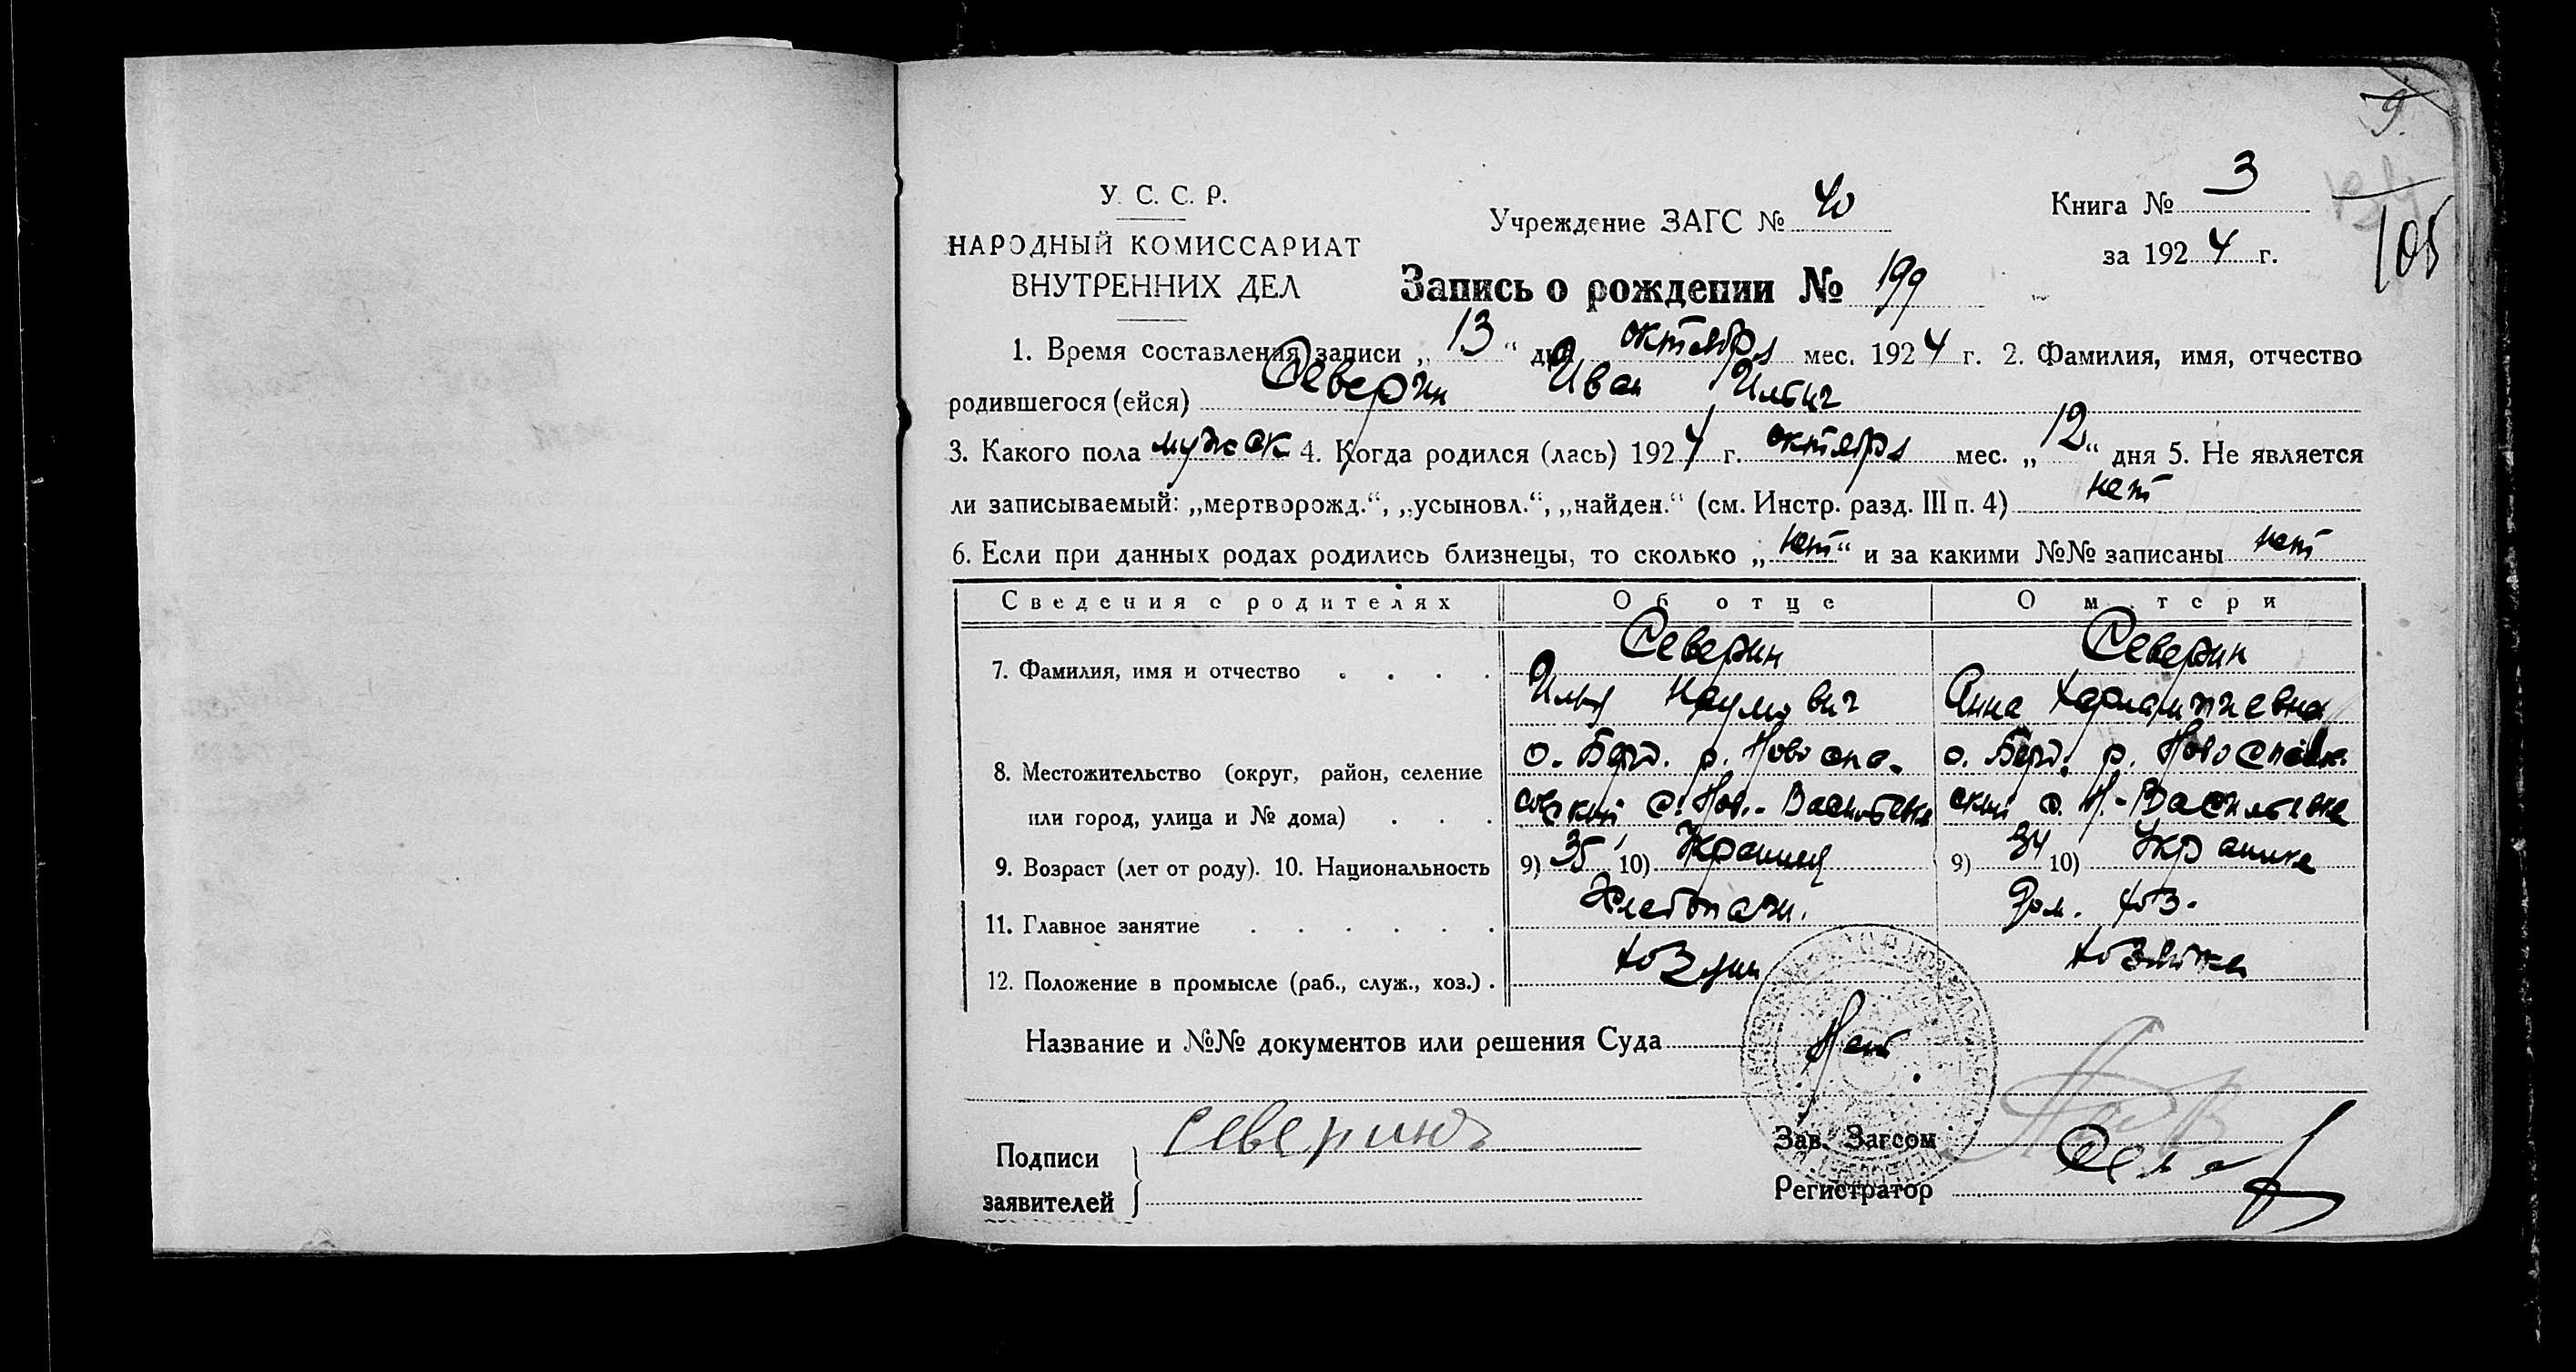 9.
105
У. С. С. Р.
НАРОДНЫЙ КОМИССАРИАТ
ВНУТРЕННИХ ДЕЛ
Учреждение ЗАГС № 40
Книга № 3
за 1924 г.
Запись о рождении № 199
1. Время составления записи „13“ дня октября мес. 1924 г. 2. Фамилия, имя, отчество
родившегося (ейся) Северин Иван Ильич
3. Какого пола мужск 4. Когда родился (лась) 1924 г. октября мес. „12“ дня 5. Не является
ли записываемый: „мертворожд.“, „усыновл.“, „найден.“ (см. Инстр. разд. III п. 4) нет
6. Если при данных родах родились близнецы, то сколько „нет“ и за какими №№ записаны нет
Сведения о родителях Об отце О матери
7. Фамилия, имя и отчество Северин Северин
Илья Наумович Анна Харлампиевна
8. Местожительство (округ, район, селение о. Берд. р. Новоспа- о. Берд. р. Новоспасов
или город, улица и № дома) совский с. Нов.-Васильевка ский с. Н-Васильевка
9. Возраст (лет от роду). 10. Национальность 9) 35 10) Украинец 9) 34 10) Украинка
11. Главное занятие Хлебопаш. Дом. хоз.
12. Положение в промысле (раб., служ., хоз.) хозяин хозяйка
Название и №№ документов или решения Суда Нет
Подписи
заявителей
Северин
Зав. Загсом
Регистратор